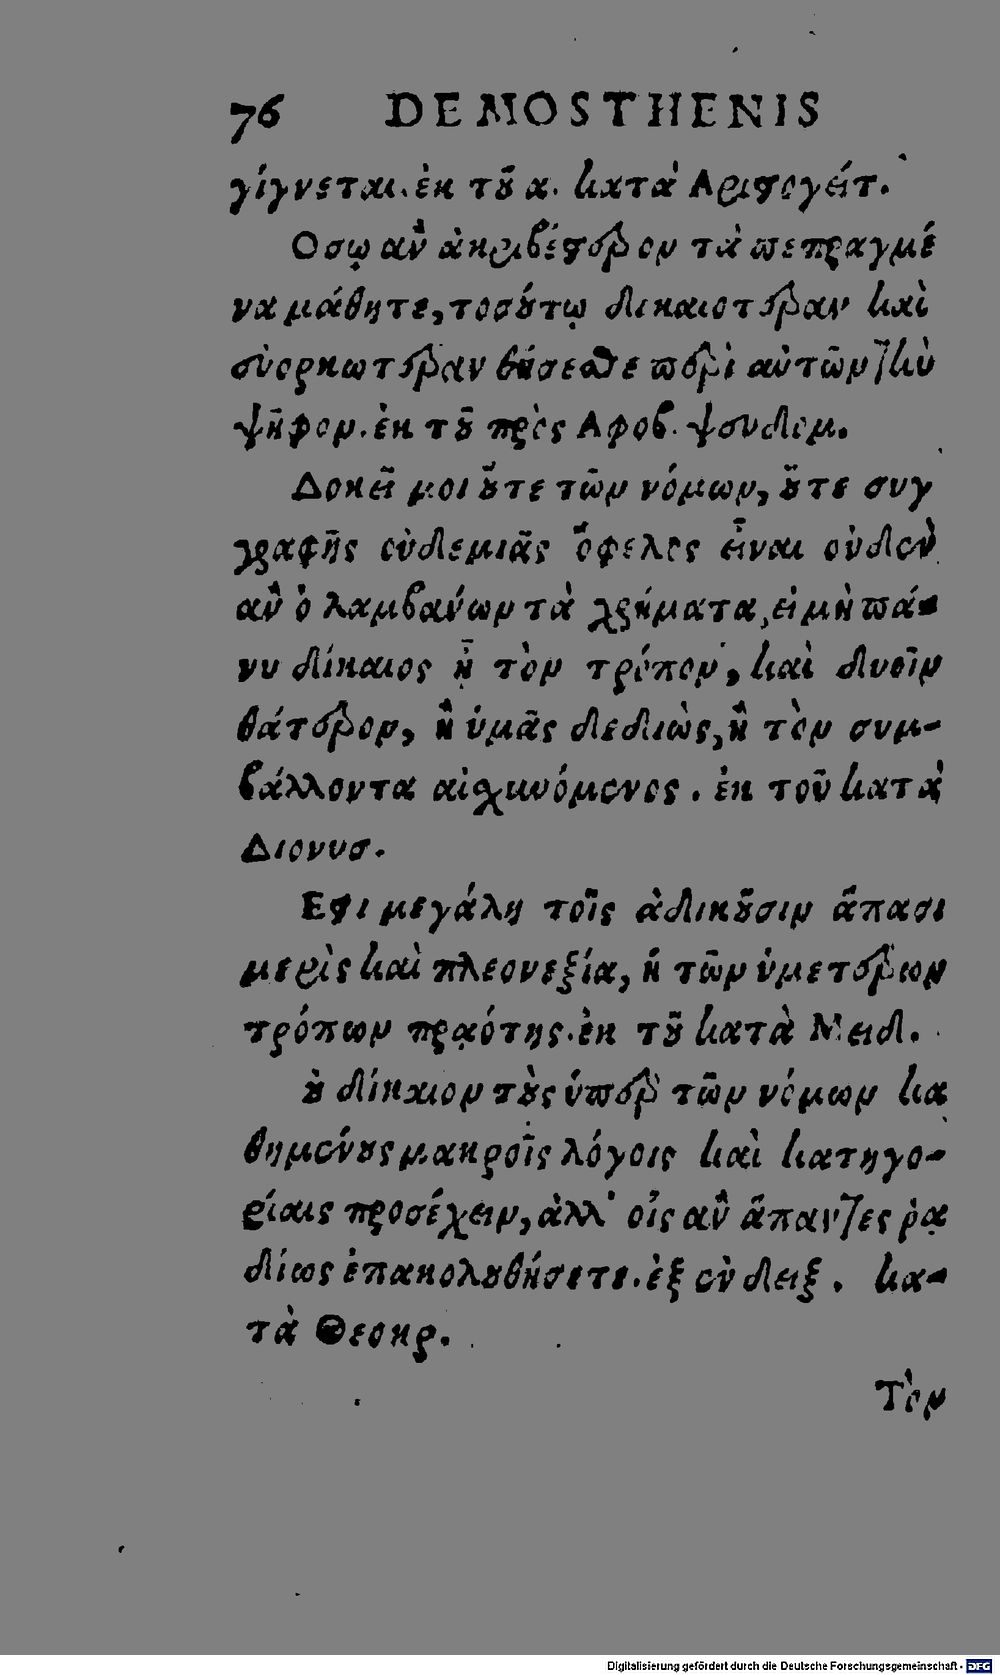 76 DEMOSTHENIS
γίγνεται. ἐκ τοῦ α. κατὰ Αριστογείτ.
Οσῳ ἂν ἀκριβέστερον τὰ πεπραγμέ
να μάθητε, τοσούτῳ δικαιοτέραν καὶ
εὐορκωτέραν θήσεσθε περὶ αὐτῶν τὴν
ψῆφον. ἐκ τοῦ πρὸς Αφοβ. ψευδομ.
Δοκεῖ μοι οὔτε τῶν νόμων, οὔτε συγ
γραφῆς οὐδεμιᾶς ὄφελος εἶναι οὐδὲν
ἂν ὁ λαμβάνων τὰ χρήματα, εἰ μὴ πά-
νυ δίκαιος ᾖ τὸν τρόπον, καὶ δυοῖν
θάτερον, ἢ ὑμᾶς δεδιὼς, ἢ τὸν συμ-
βάλλοντα αἰσχυνόμενος. ἐκ τοῦ κατὰ
Διονυσ.
Εστι μεγάλη τοῖς ἀδικοῦσιν ἅπασι
μερὶς καὶ πλεονεξία, ἡ τῶν ὑμετέρων
τρόπων πρᾳότης. ἐκ τοῦ κατὰ Μειδ.
οὐ δίκαιον τοὺς ὑπὲρ τῶν νόμων κα
θημένους μακροῖς λόγοις καὶ κατηγο-
ρίαις προσέχειν, ἀλλ' οἷς ἂν ἅπαντες ῥᾳ
δίως ἐπακολουθήσετε. ἐξ ἐνδειξ. κα-
τὰ Θεοκρ.
Τὸν
Digitalisierung gefördert durch die Deutsche Forschungsgemeinschaft - DFG